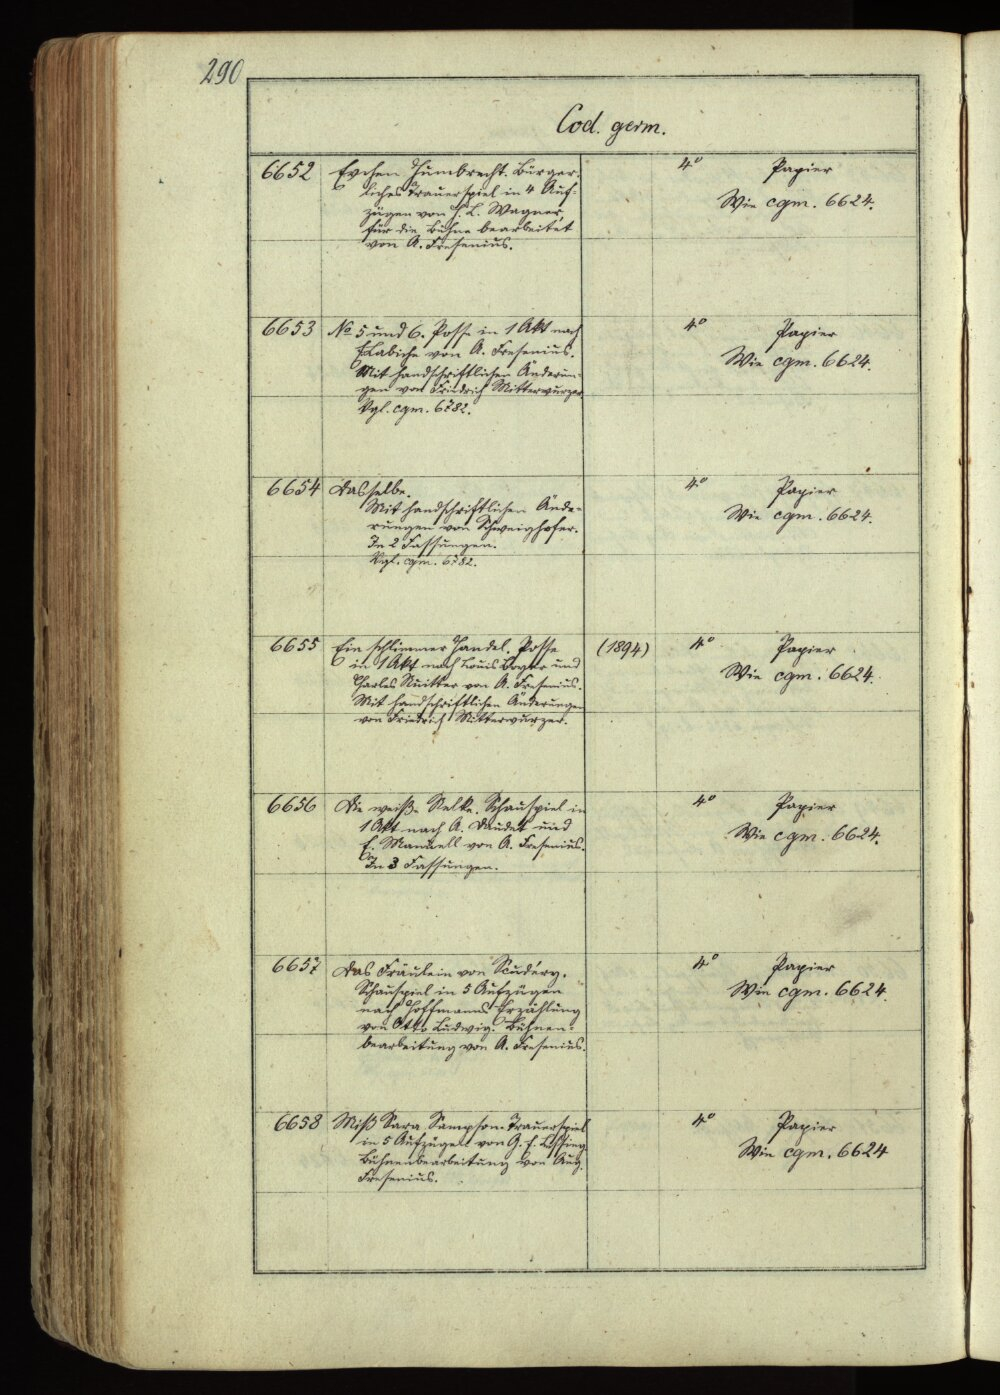 290
Cod. germ.
6652 Evchen Humbrecht. Bürger- 4° Papier
liches Trauerspiel in 4 Auf- Wie cgm. 6624.
zügen von H. L. Wagner,
für die Bühne bearbeitet
von A. Fresenius.
6653 No 5 und 6. Posse in 1 Akt nach 4° Papier
E. Labiche von A. Fresenius. Wie cgm. 6624.
Mit handschriftlichen Änderun-
gen von Friedrich Mitterwurzer.
Vgl. cgm. 6782.
6654 Dasselbe. 4° Papier
Mit handschriftlichen Ände- Wie cgm. 6624.
rungen von Schweighofer.
In 2 Fassungen.
Vgl. cgm. 6782.
6655 Ein schlimmer Handel. Posse (1894) 4° Papier
in 1 Akt nach Louis Boyer und Wie cgm. 6624.
Charles Nuitter von A. Fresenius.
Mit handschriftlichen Änderungen
von Friedrich Mitterwurzer.
6656 Die weiße Nelke. Schauspiel in 4° Papier
1 Akt nach A. Daudet und Wie cgm. 6624.
E. Manuell von A. Fresenius.
In 3 Fassungen.
6657 Das Fräulein von Scudéry. 4° Papier
Schauspiel in 5 Aufzügen Wie cgm. 6624.
nach Hoffmanns Erzählung
von Otto Ludwig. Bühnen-
bearbeitung von A. Fresenius.
6658 Miß Sara Sampson. Trauerspiel 4° Papier
in 5 Aufzügen von G. E. Lessing Wie cgm. 6624
Bühnenbearbeitung von Aug.
Fresenius.